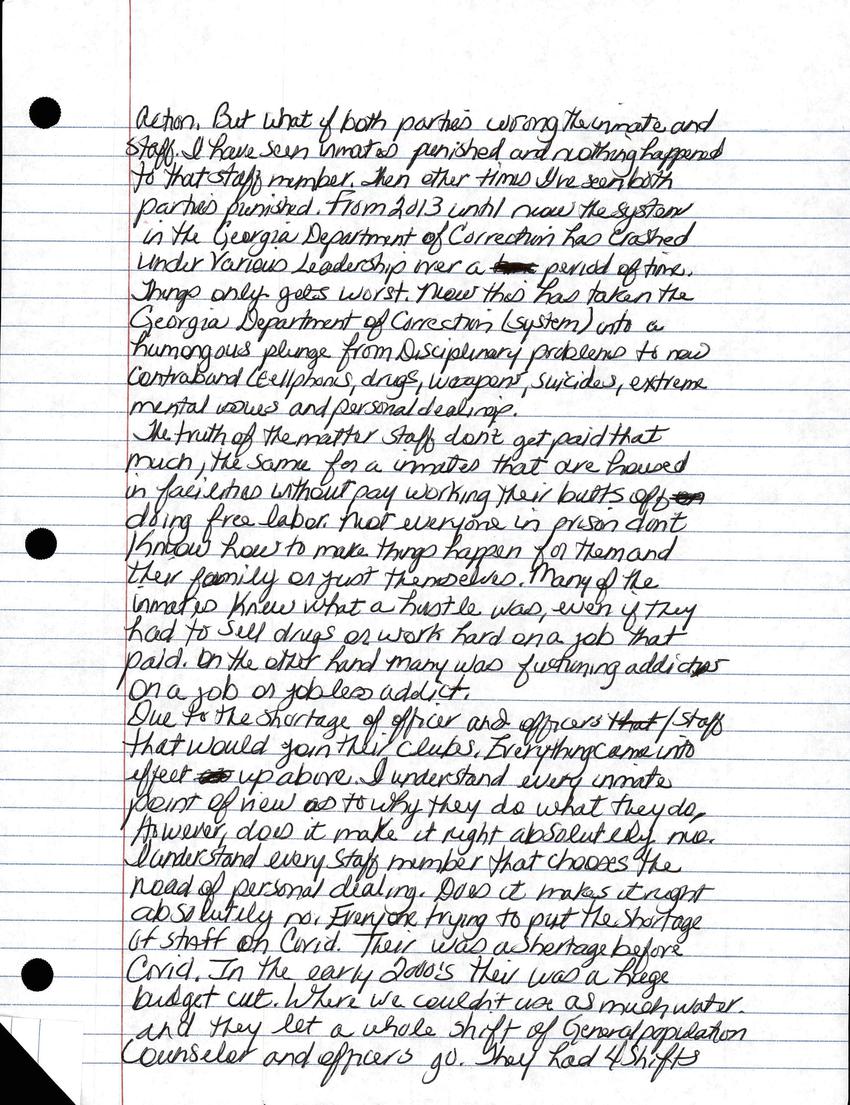 action. But what if both parties wrong the inmate and
staff. I have seen inmates punished and nothing happened
to that staff member. Then other times I've seen both
parties punished. From 2013 until now the system
in the Georgia Department of Correction has crashed
under various Leadership over a period of time.
Things only gets worst. Now this has taken the
Georgia Department of Correction (system) into a
humongous plunge from Disciplinary problems to now
contraband (cellphones, drugs, weapons, suicides, extreme
mental issues and personal dealings.
The truth of the matter staff don't get paid that
much, the same for a inmates that are housed
in facilities without pay working their butts off
doing free labor. Not everyone in prison don't
know how to make things happen for them and
their family or just themselves. Many of the
inmates knew what a hustle was, even if they
had to sell drugs or work hard on a job that
paid. On the other hand many was fuctioning addicts
on a job or jobless addict.
Due to the shortage of officer and officers that / staff
that would join their clubs. Everything came into
effect up above. I understand every inmate
point of view as to why they do what they do,
However, does it make it right absolutely no.
I understand every staff member that chooses the
road of personal dealing. Does it makes it right
absolutely no. Everyone trying to put the shortage
of staff on Covid. Their was a shortage before
Covid. In the early 2000's their was a huge
budget cut. Where we couldn't use as much water.
and they let a whole shift of General population
Counselor and officers go. They had 4 shifts